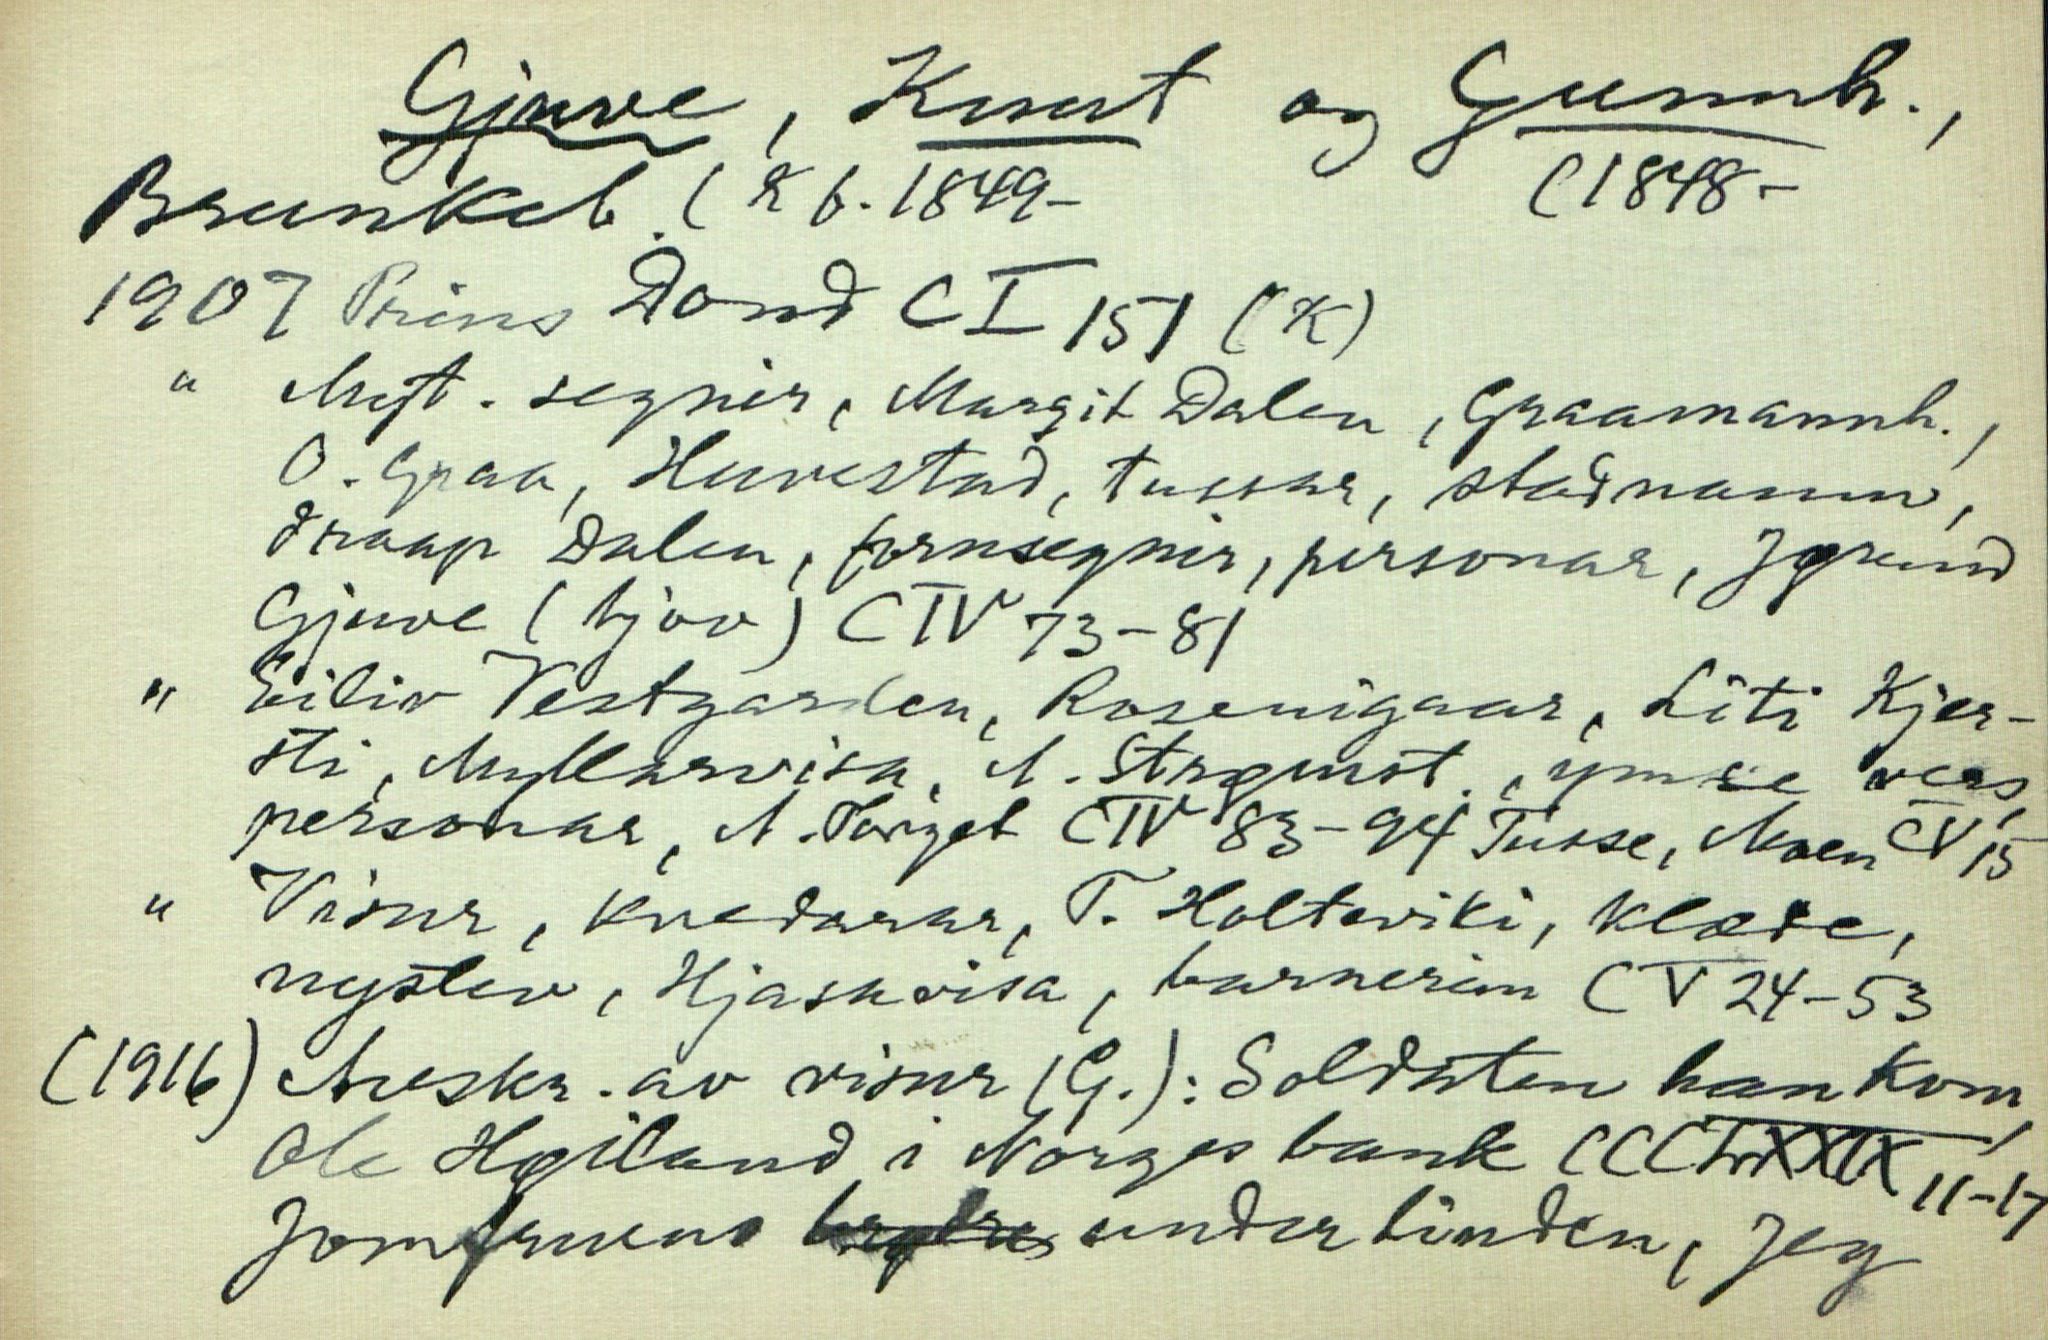 Gjuve, Knut og Gunnh.,
Brunkeb. (K f. 1849- (1848-
1907 Prins Dond CI 151 (K)
" Myt. segner, Margit Dalen, Graamannh.,
O. Graa, Huvestad, tussar, stadnamn,
draap Dalen, fornsegner, personar, Jørund
Gjuve (tjov) CIV 73-81
" Eiliv Vestgarden, Rosenigaar, Liti Kjer-
sti, Myllarvisa, A. Strømot, ymse vers,
personar, A. CIV 83-94 Tusse, Moen CV 15
" Visur, kvedarar, T. Holteviki, klæde,
nystev, Hjasavisa, barnerim CV 24-53
(1916) Avskr. av visur (G.): Soldaten han kom,
Ole Høiland i Norges bank 11-17
Jomfruens under linden, Jeg